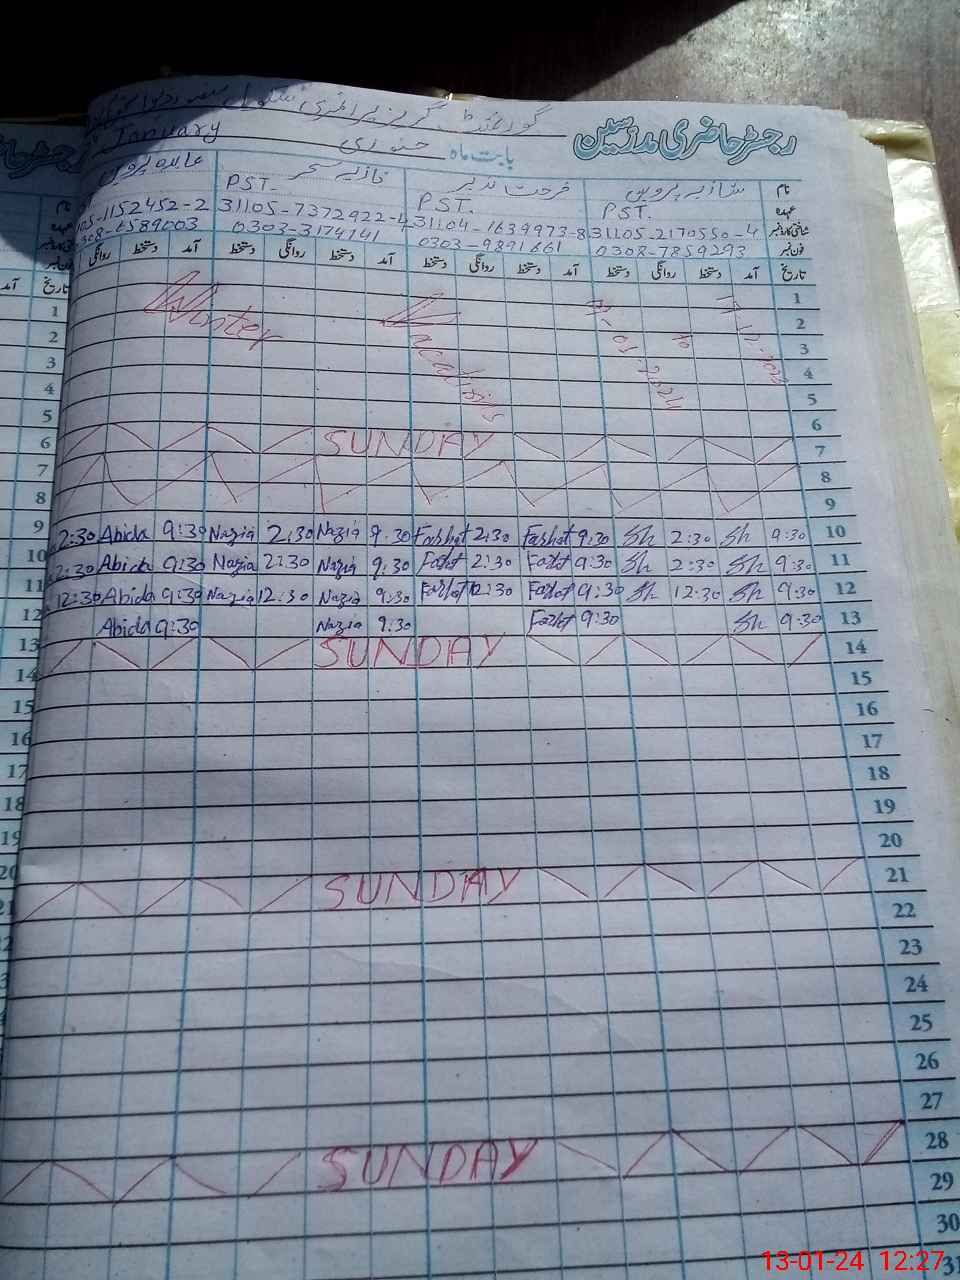 رجسٹر حاضری مدرسین
گورنمنٹ گرلز پرائمری سکول
بابت ماہ جنوری January
نام شازیہ پروین فرحت نذیر نازیہ سحر عابدہ پروین
عہدہ PST. PST. PST.
شناختی کارڈ نمبر 31105-2170550-4 31104-1639973-8 31105-7372922-4 05-1152452-2
فون نمبر 0308-7859293 0303-9891661 0303-3174141 308-6589003
تاریخ آمد دستخط روانگی دستخط آمد دستخط روانگی دستخط آمد دستخط روانگی دستخط آمد دستخط روانگی
1
2
3
4
5
6
Winter Vacations
to
7 SUNDAY
8
9
10 9:30 Sh 2:30 Sh 9:30 Farhat 2:30 Farhat 9:30 Nazia 2:30 Nazia 9:30 Abida 2:30
11 9:30 Sh 2:30 Sh 9:30 Farhat 2:30 Farhat 9:30 Nazia 2:30 Nazia 9:30 Abida 2:30
12 9:30 Sh 12:30 Sh 9:30 Farhat 12:30 Farhat 9:30 Nazia 12:30 Nazia 9:30 Abida 12:30
13 9:30 Sh 9:30 Farhat 9:30 Nazia 9:30 Abida
14 SUNDAY
15
16
17
18
19
20
21 SUNDAY
22
23
24
25
26
27
28 SUNDAY
29
30
31
نام
عہدہ
شناختی کارڈ نمبر
فون نمبر
تاریخ آمد
1
2
3
4
5
6
7
8
9
10
11
12
13
14
15
16
17
18
19
20
21
13-01-24 12:27